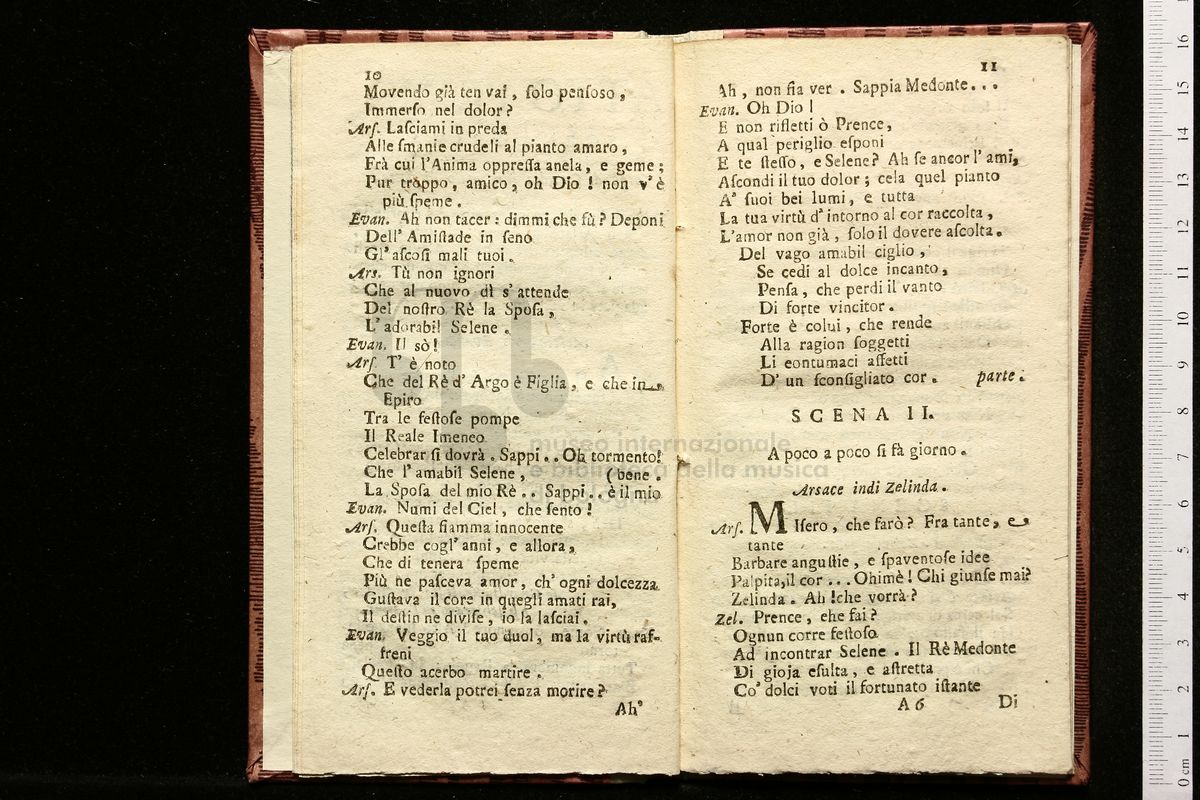 10
Movendo già ten vai, ſolo penſoso,
Immerſo nel dolor?
Arſ. Laſciami in preda
Alle ſmanie crudeli al pianto amaro,
Frà cui l'Anima oppreſſa anela, e geme;
Pur tròppo, amico, oh Dio! non v'è
più ſpeme.
Evan. Ah non tacer: dimmi che fù? Deponi
Dell' Amiſtade in ſeno
Gl' aſcoſi mali tuoi.
Ars. Tù non ignori
Che al nuovo dì s' attende
Del noſtro Rè la Spoſa,
L' adorabil Selene.
Evan. Il sò!
Arſ. T' è noto
Che del Rè d' Argo è Figlia, e che in
Epiro
Tra le feſtoſe pompe
Il Reale Imeneo
Celebrar ſi dovrà. Sappi.. Oh tormento!
Che l' amabil Selene, (bene.
La Spoſa del mio Rè.. Sappi.. è il mio
Evan. Numi del Ciel, che ſento!
Arſ. Queſta fiamma innocente
Crebbe cogl' anni, e allora,
Che di tenera ſpeme
Più ne paſceva amor, ch' ogni dolcezza
Guſtava il core in quegli amati rai,
Il deſtin ne diviſe, io la laſciai.
Evan. Veggio il tuo duol, ma la virtù raf-
freni
Queſto acerbo martire.
Arſ. E vederla potrei ſenza morire?
Ah'
11
Ah, non ſia ver. Sappia Medonte...
Evan. Oh Dio!
E non rifletti ò Prence,
A qual periglio eſponi
E te ſteſſo, e Selene? Ah ſe ancor l' ami,
Aſcondi il tuo dolor; cela quel pianto
A' ſuoi bei lumi, e tutta
La tua virtù d' intorno al cor raccolta,
L'amor non già, ſolo il dovere aſcolta.
Del vago amabil ciglio,
Se cedi al dolce incanto,
Penſa, che perdi il vanto
Di forte vincitor.
Forte è colui, che rende
Alla ragion ſoggetti
Li eontumaci affetti
D' un ſconſigliato cor. parte.
SCENA II.
A poco a poco ſi fà giorno.
Arsace indi Zelinda.
Arſ. MIſero, che farò? Fra tante, e
tante
Barbare anguſtie, e ſpaventoſe idee
Palpita, il cor... Ohimè! Chi giunſe mai?
Zelinda. Ah! che vorrà?
Zel. Prence, ehe fai?
Ognun corre feſtoſo
Ad incontrar Selene. Il Rè Medonte
Di gioja eſulta, e aſtretta
Co' dolci voti il fortunato iſtante
A 6 Di
museo internazionale
e biblioteca della musica
0 cm 1 2 3 4 5 6 7 8 9 10 11 12 13 14 15 16